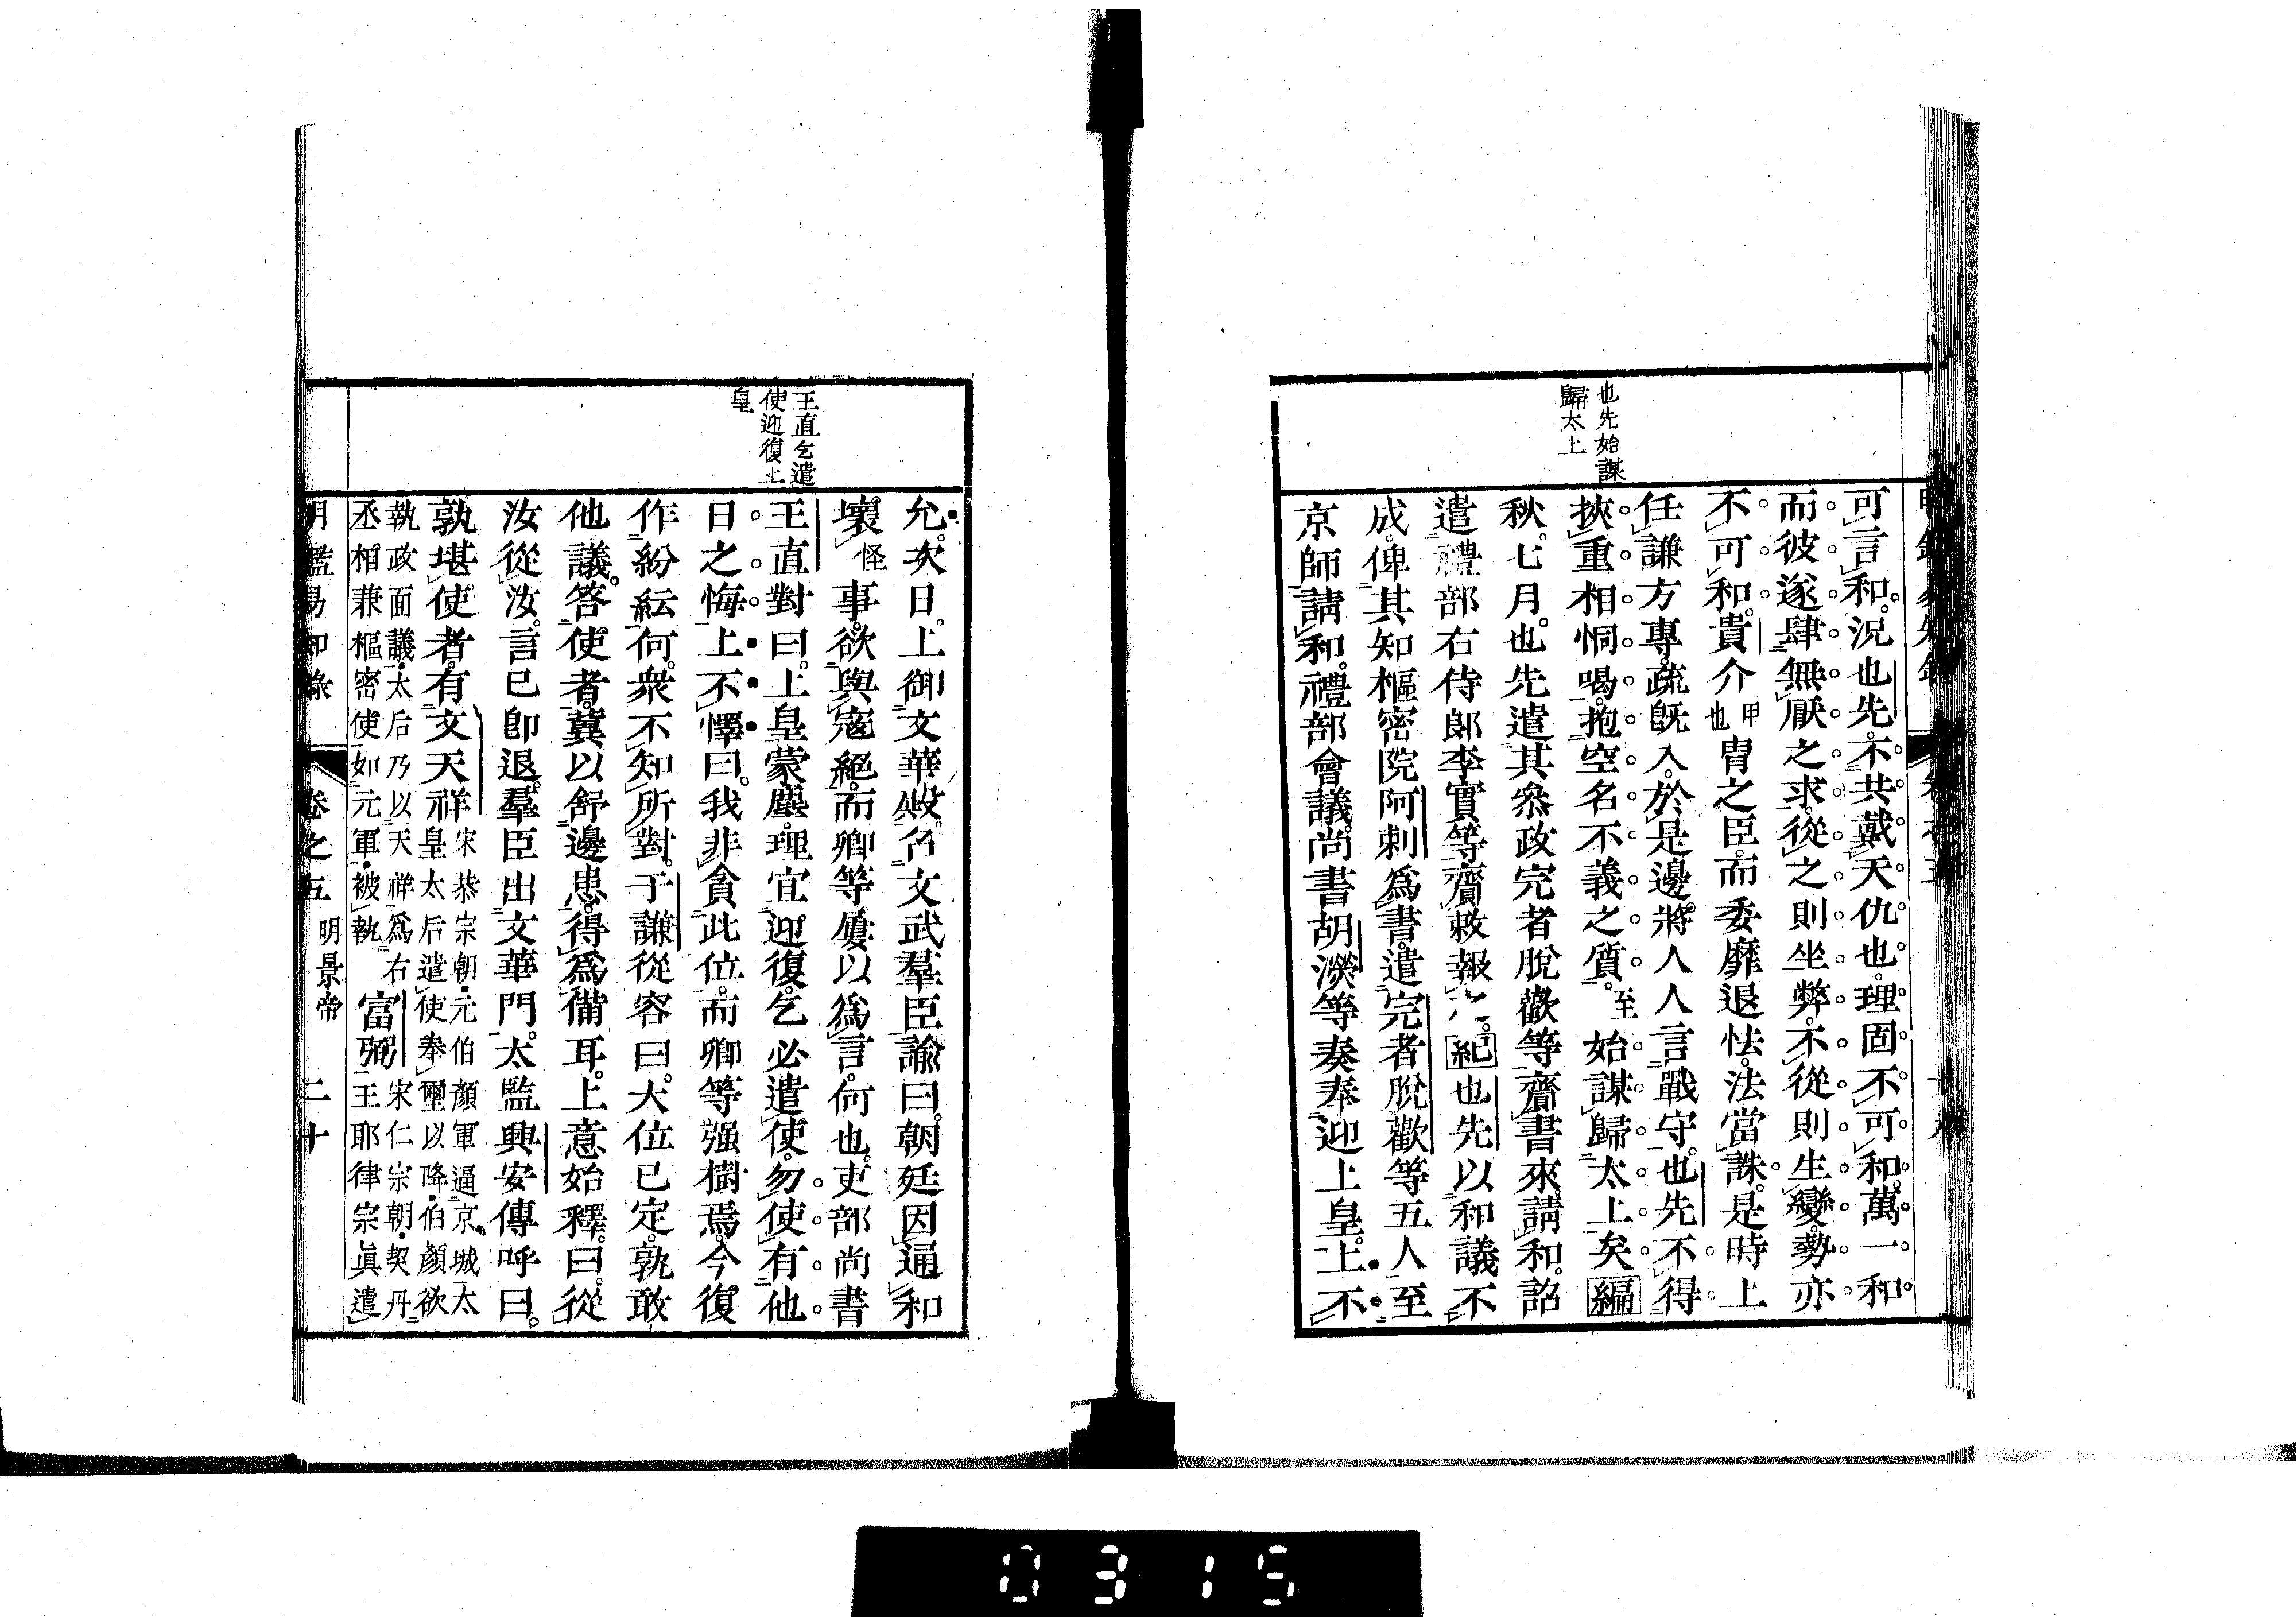 也先始謀
歸太上
可言和。況也先不共戴天仇也。理固不可和。萬一和
而彼遂肆無厭之求。從之則坐弊。不從則生變。勢亦
不可和。貴介甲也冑之臣。而委靡退怯。法當誅。是時上
任謙方專。疏既入。於是邊將人人言戰守。也先不得
挾重相恫喝。抱空名不義之質。至始謀歸太上矣編
秋。七月。也先遣其叅政完者脫歡等齎書來請和。詔
遣禮部右侍郎李實等齎敕報之。紀也先以和議不
成。俾其知樞密院阿剌爲書。遣完者脫歡等五人至
京師請和。禮部會議。尚書胡濙等奏奉迎上皇。上不
王直乞遣
使迎復上
皇
允。次日。上御文華殿。召文武羣臣諭曰。朝廷因通和
壞怪事。欲與寇絕。而卿等屢以爲言。何也。吏部尚書
王直對曰。上皇蒙塵。理宜迎復。乞必遣使。勿使有他
日之悔。上不懌曰。我非貪此位。而卿等强樹焉。今復
作紛紜何。衆不知所對。于謙從容曰。大位已定。孰敢
他議。答使者。冀以舒邊患。得爲備耳。上意始釋。曰。從
汝從汝。言已卽退。羣臣出文華門。太監興安傳呼曰。
孰堪使者。有文天祥宋恭宗朝。元伯顏軍逼京城。太
皇太后遣使奉璽以降。伯顏欲
執政面議。太后乃以天祥爲右
丞相兼樞密使如元軍。被執富弼宋仁宗朝。契丹
王耶律宗眞遣
明鑑易知錄 卷之五 明景帝 二十